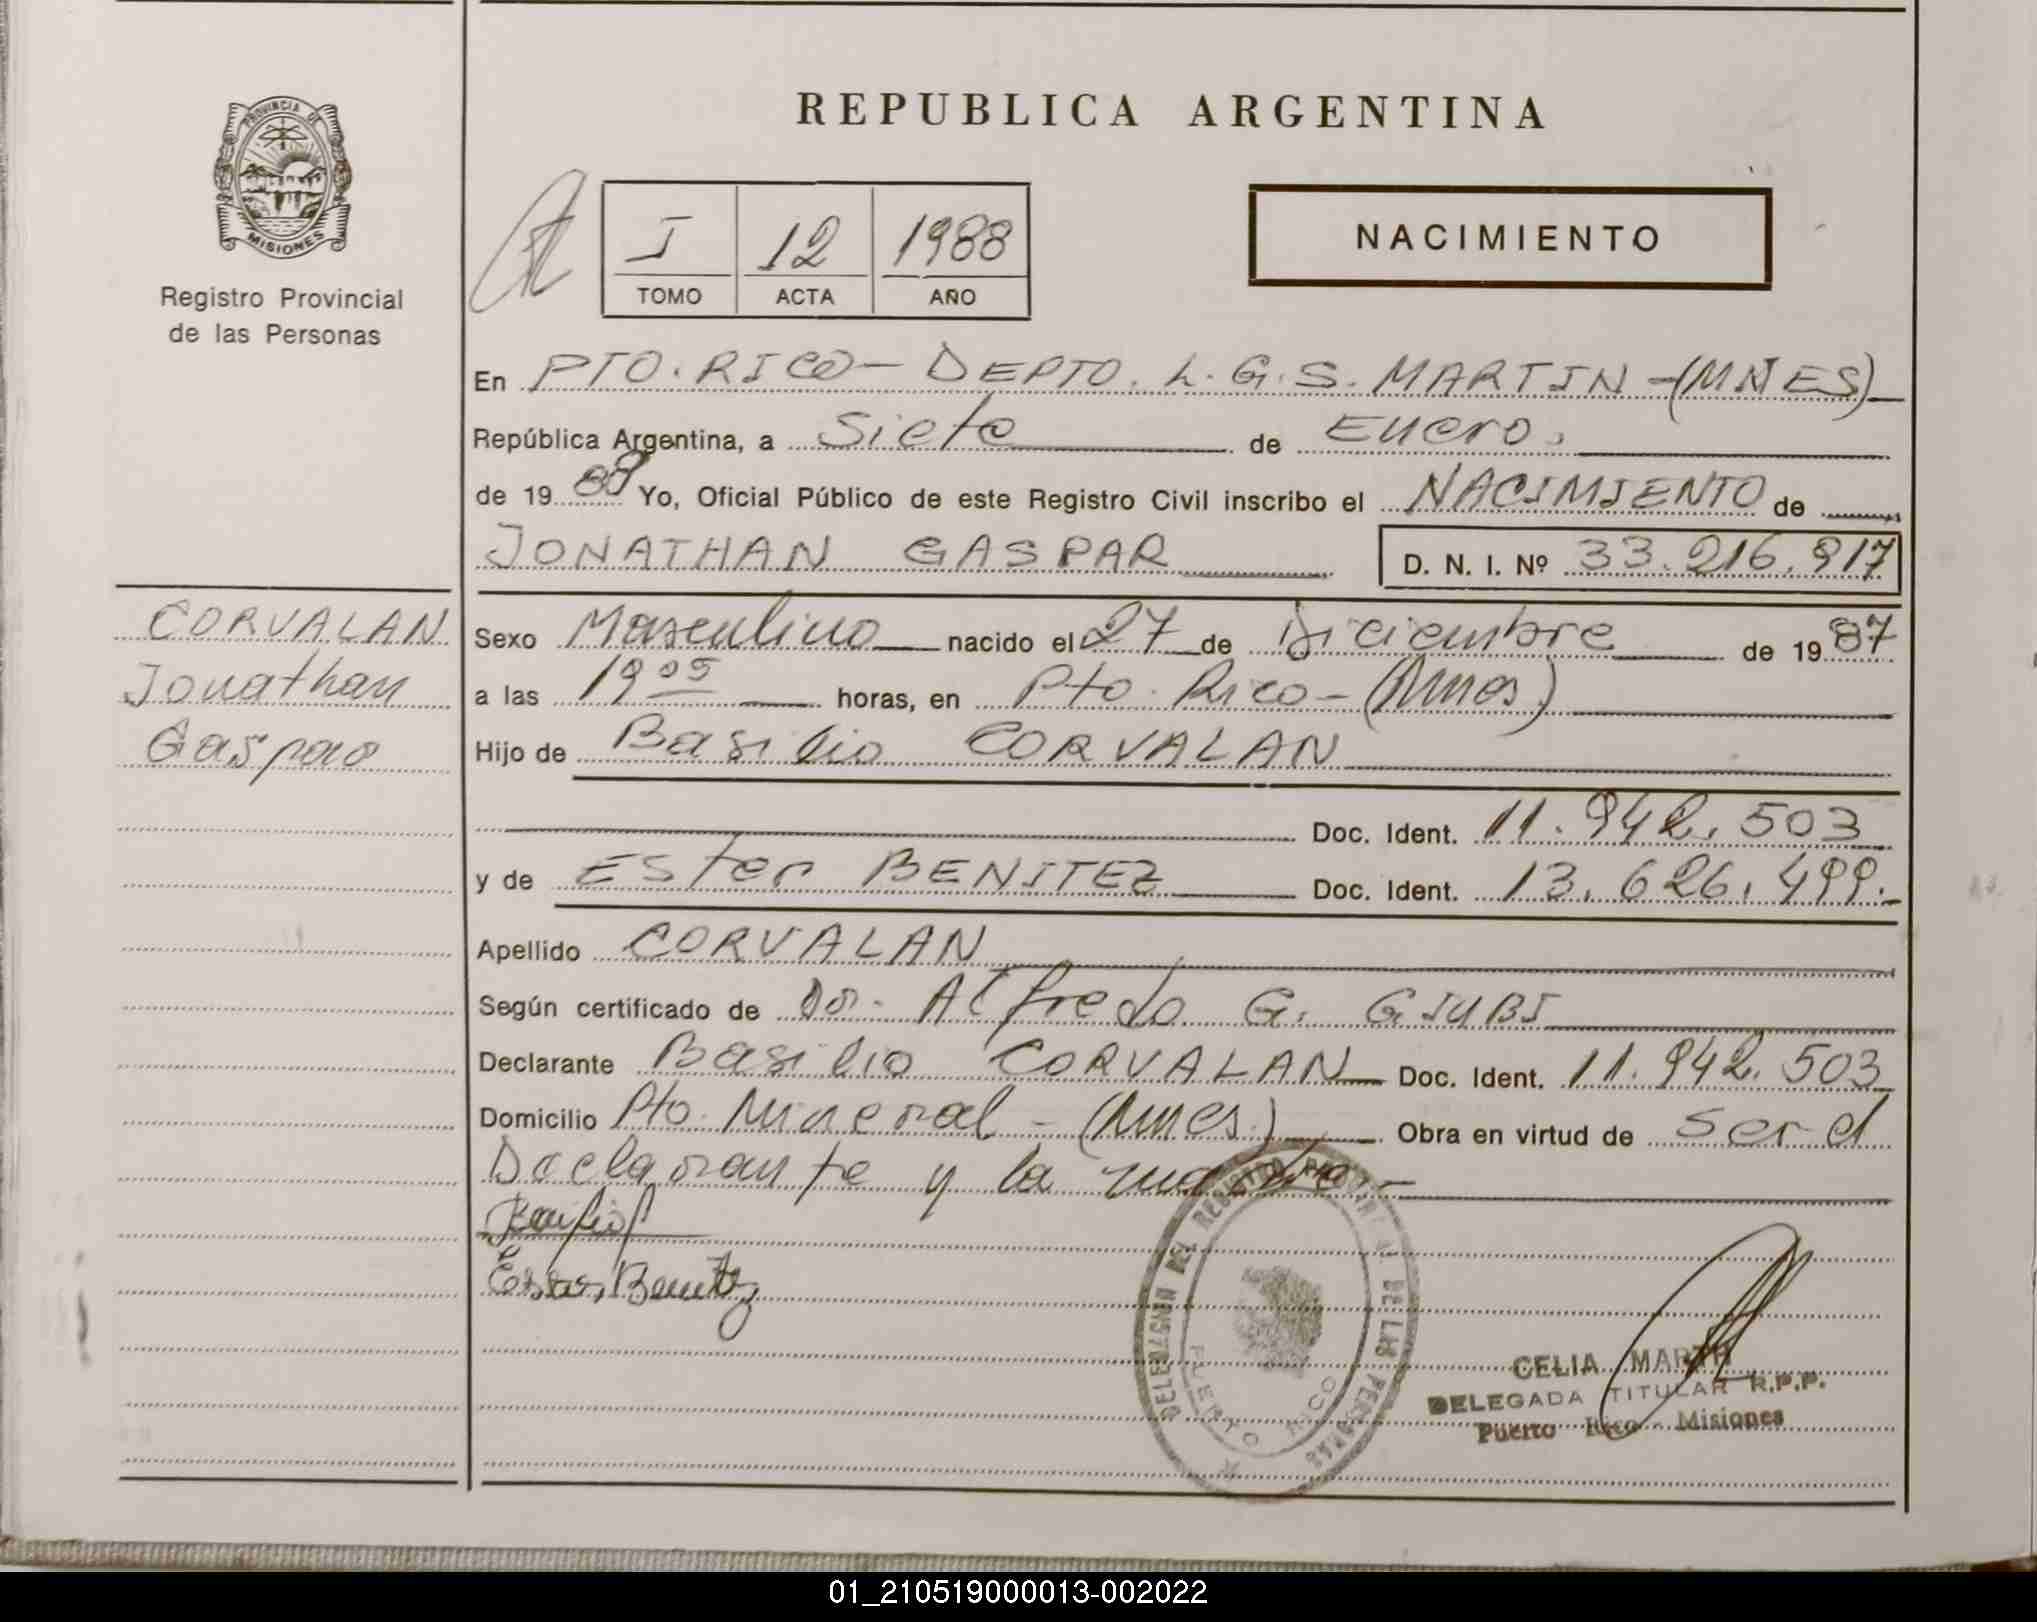 PROVINCIA DE
MISIONES
Registro Provincial
de las Personas
CORVALAN
Jonathan
Gaspar
REPUBLICA ARGENTINA
I 12 1988
TOMO ACTA AÑO
NACIMIENTO
En PTO. RICO - DEPTO. L. G. S. MARTIN - (MNES)
República Argentina, a Siete de Enero.
de 1988 Yo, Oficial Público de este Registro Civil inscribo el NACIMIENTO de
JONATHAN GASPAR D. N. I. Nº 33.216.917
Sexo Masculino nacido el 27 de Diciembre de 1987
a las 19 05 horas, en Pto. Rico - (Mnes)
Hijo de Basilio CORVALAN
Doc. Ident. 11.942.503
y de Ester BENITEZ Doc. Ident. 13.626.499.-
Apellido CORVALAN
Según certificado de Dr. Alfredo G. GIUBI
Declarante Basilio CORVALAN Doc. Ident. 11.942.503
Domicilio Pto. Mineral - (Mnes.) Obra en virtud de ser el
Declarante y la madre.-
Ester Benitez
DELEGACION DEL REGISTRO PROVINCIAL DE LAS PERSONAS
PUERTO RICO
CELIA MARTH
DELEGADA TITULAR R.P.P.
Puerto Rico - Misiones
01_210519000013-002022